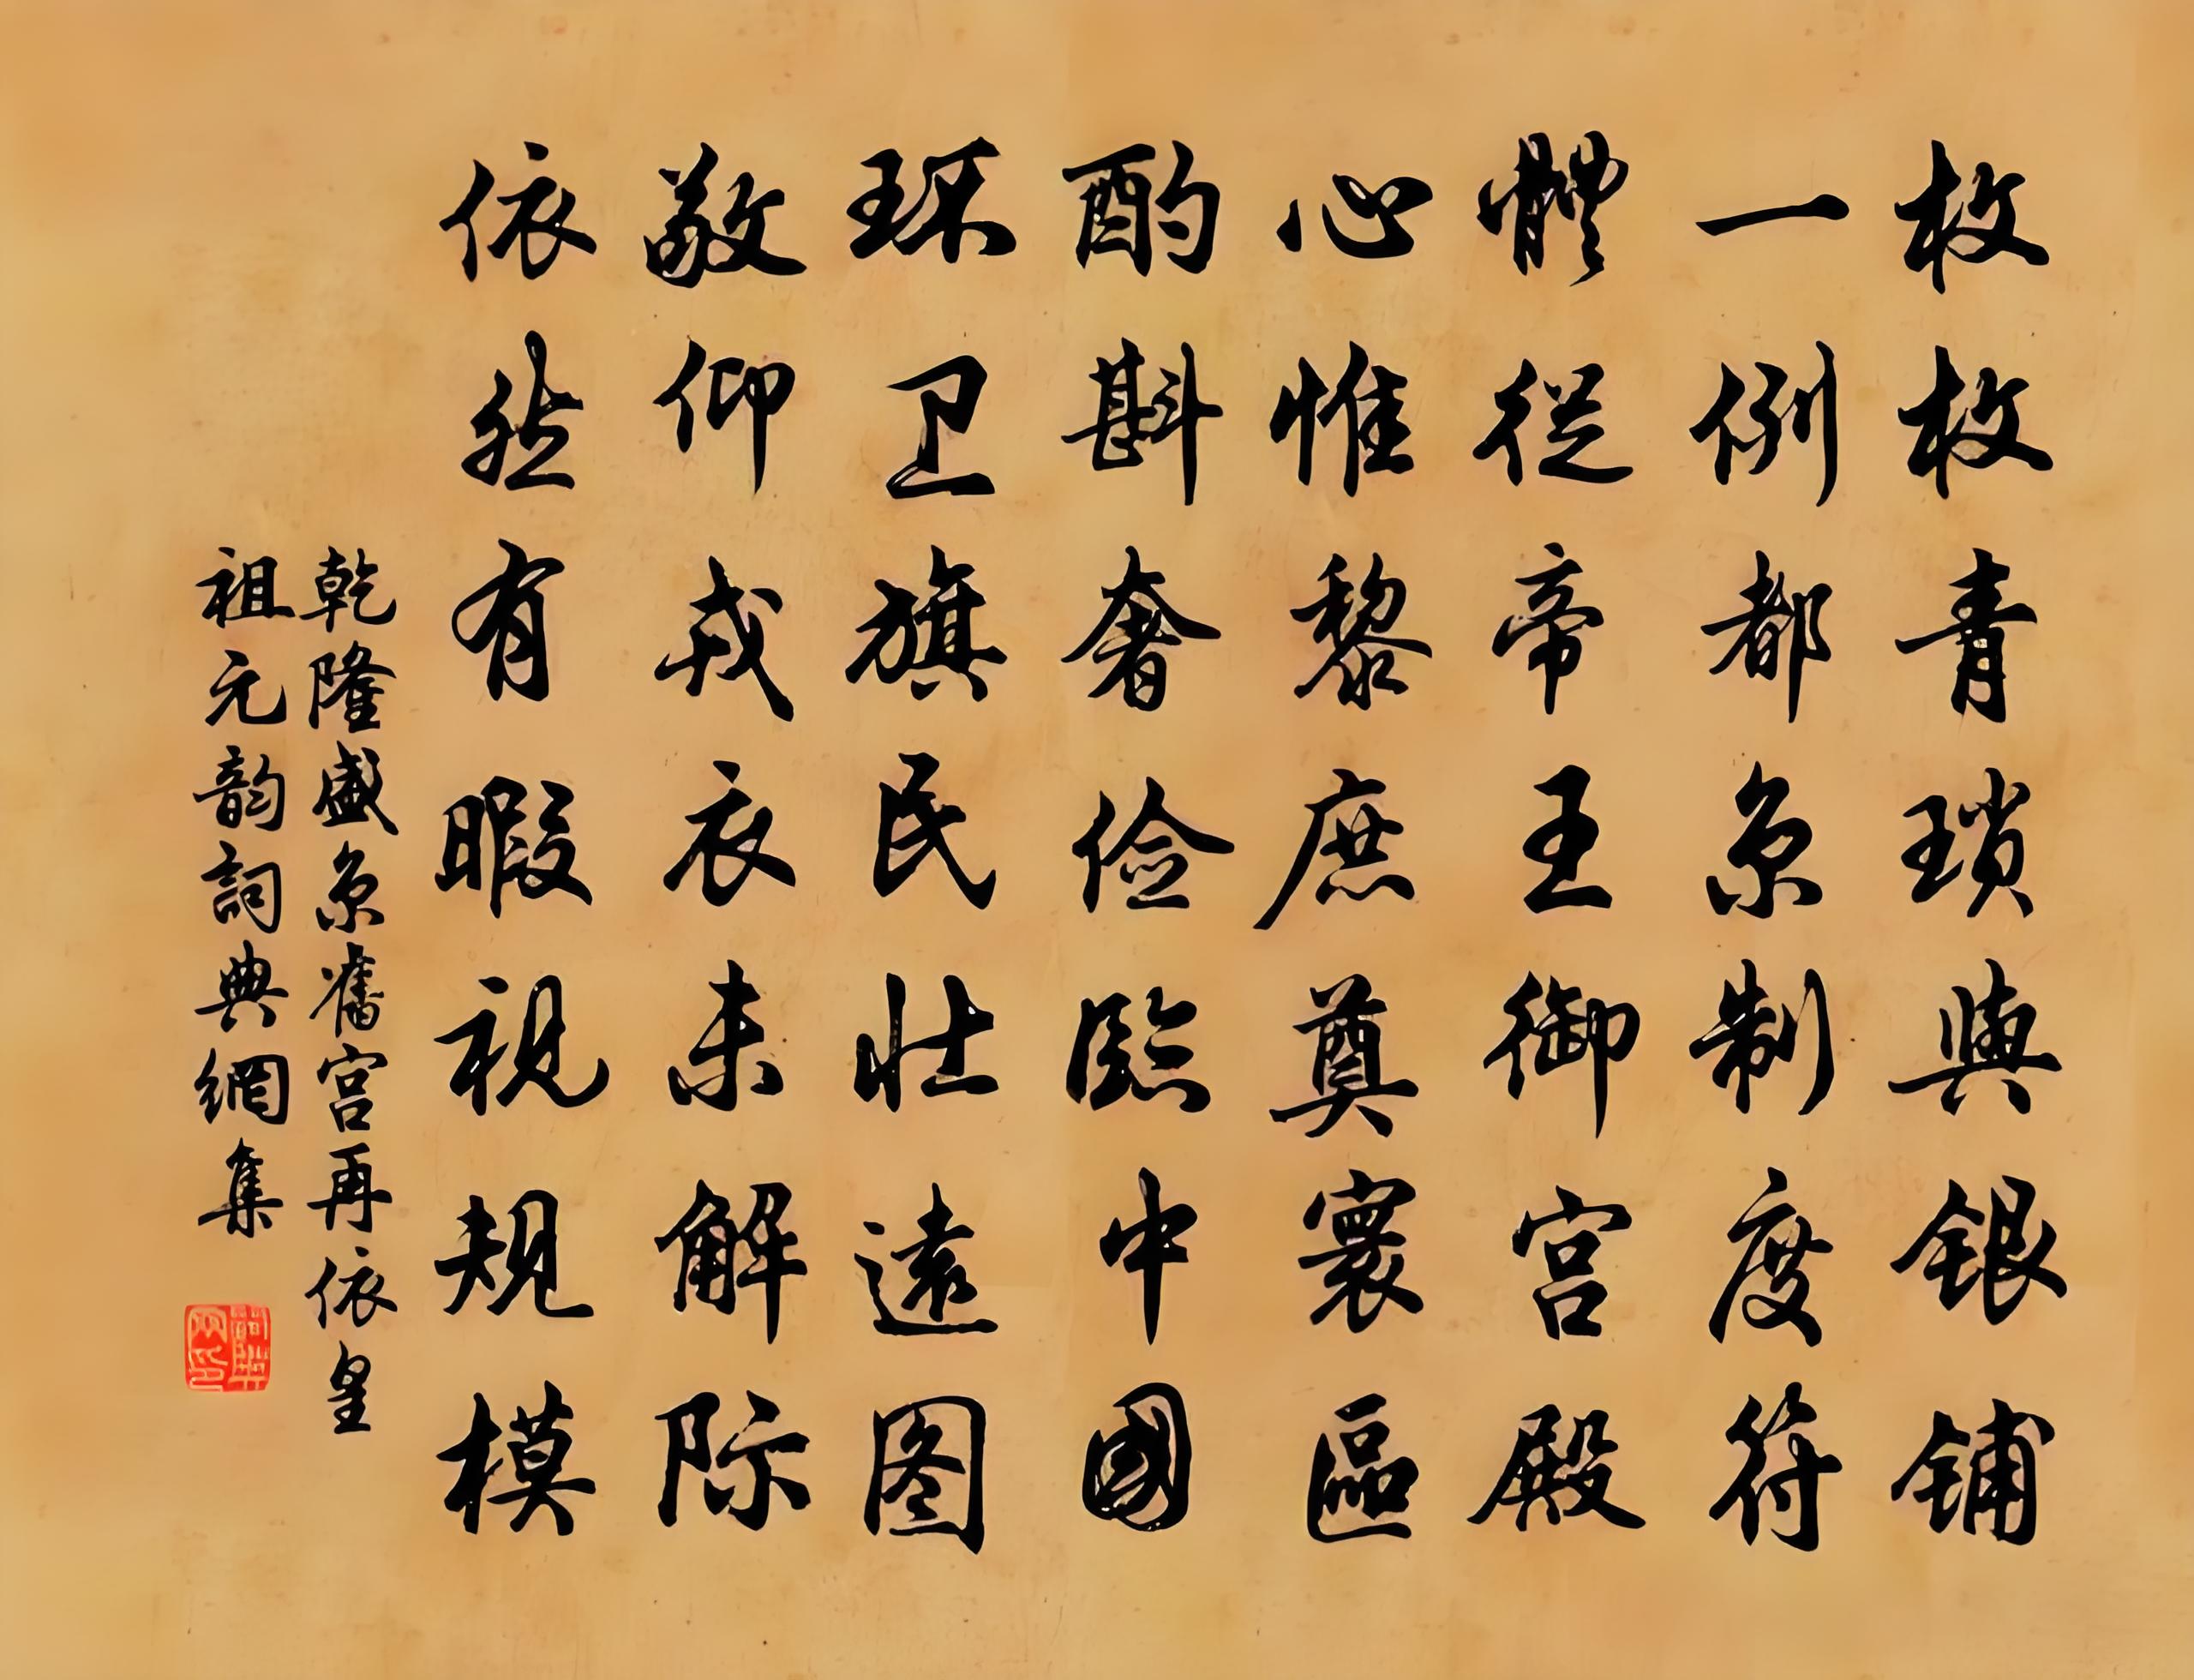 枚枚青琐與银铺
一例都京制度符
體從帝王御宫殿
心惟黎庶奠寰區
酌斟奢俭臨中國
环卫旗民壮遠图
敬仰戎衣未解际
依然有暇視規模
乾隆盛京舊宫再依皇
祖元韵詞典網集